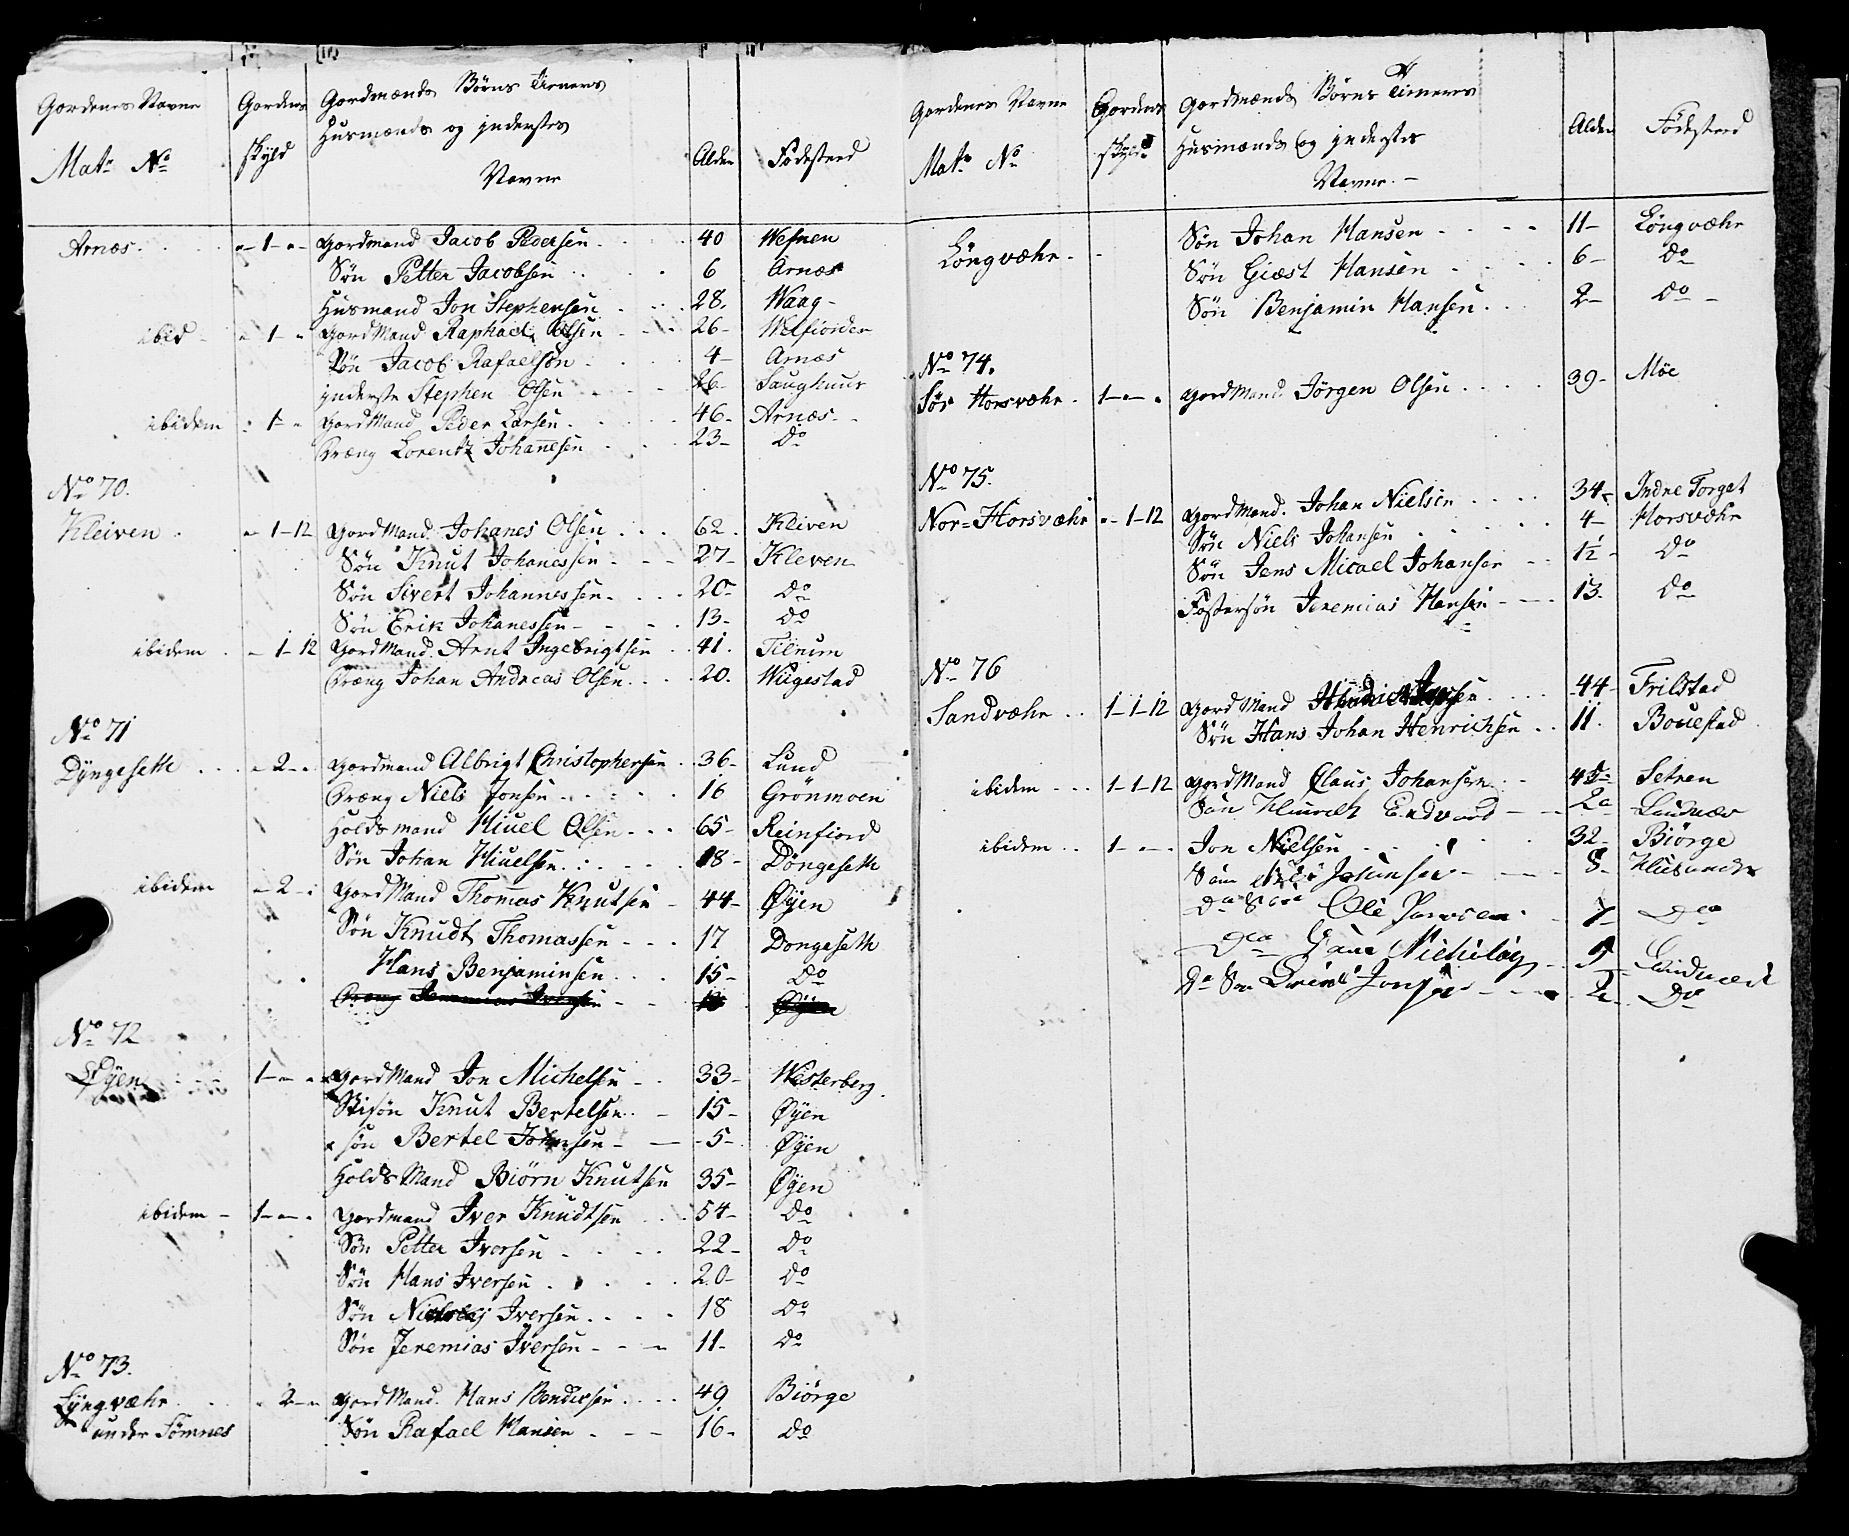 Gordenes Navne Gordens Gordmænds Børns Tieneres
Husmænds og jnderstes
Mat: No skyld Navne Alder Fødested
Arnæs - 1 - Gordmand Jacob Pedersen 40 Wefnen
Søn Petter Jacobsen 6 Arnæs
Husmand Jon Stephensen 28 Waag
ibid - 1 - GordMand Raphael Olsen 26 Welfiorden
Søn Jacob Rafaelsøn 4 Arnæs
jnderste Stephen Olsen 26 Saughuus
ibidem 1 - GordMand Peder Larsen 46 Arnæs
Dræng Lorentz Johannesen 23 Do
No 70.
Kleiven - 1-12 GordMand Johanes Olsen 62 Kliven
Søn Knut Johanessen 27 Kleven
Søn Sivert Johannessen 20 Do
Søn Erik Johanessen 13 Do
ibidem - 1-12 GordMand Arnt Ingebrigtsen 41. Tilrum
Dræng Johan Andreas Olsen 20. Wiigestad
No 71
Dÿngeseth - 2 - Gordmand Albrigt Christophersen 36 Lund
Dræng Niels Jonsen 16 Grönmoen
Holdsmand Hiuel Olsen 65 Reinfiord
Søn Johan Hiuelsen 18 Döngeseth
ibidem - 2 - GordMand Thommas Knutsen 44 Øÿen
Søn Knudt Thomassen 17 Dongeseth
Hans Benjaminsen 15 Do
Dræng Jeremias Iversen Øÿen
No 72
Øÿen 1 - - GordMand Jon Michelsen 33 Westerberg
Stifsøn Knut Bertelsen 15 Øÿen
søn Bertel Johnsen 5 Øÿen
HoldsMand Biörn Knutsen 35 Øÿen
ibidem 1 - - Gordmand Iver Knudtsen 54 Do
Søn Petter Iversen 22 Do
Søn Hans Iversen 20 Do
Søn Nicolaj Iversen 18 Do
Søn Jeremias Iversen 11 Do
No 73.
Lÿngvæhr - 2 - GordMand Hans Bendixsen 49 Biörge
under Sömnes Søn Rafael Hansen 16 Do
Gordenes Navne Gordens Gordmænds Børns Tieneres
Husmænds og jnderstes
Mat: No skyld Navne Alder Fødested
Löngvæhr Søn Johan Hansen 11 Löngvæhr
Søn Giæst Hansen 6 Do
Søn Benjamin Hansen 2 Do
No 74.
Sør Horsvæhr 1 - - GordMand Jörgen Olsen 39 Moe
No 75.
Nor=Horsvæhr - 1-12 GordMand Johan Nielsen 34 Indre Torget
Søn Niels Johansen 4 Horsvæhr
Søn Jens Micael Johansen 1½ Do
Fostersøn Jeremias Hansen 13. Do
No 76
Sandvæhr 1-1-12 GordMand 44 Frilstad
Søn Hans Johan Henrichsen 11. Bouestad
ibidem 1-1-12 GordMand Claus Johansen Setren
Edvard
ibidem 1 - - Jon Nielsen 32 Biörge
8
Ole 7 Do
Nicholay
Søn 2 Do